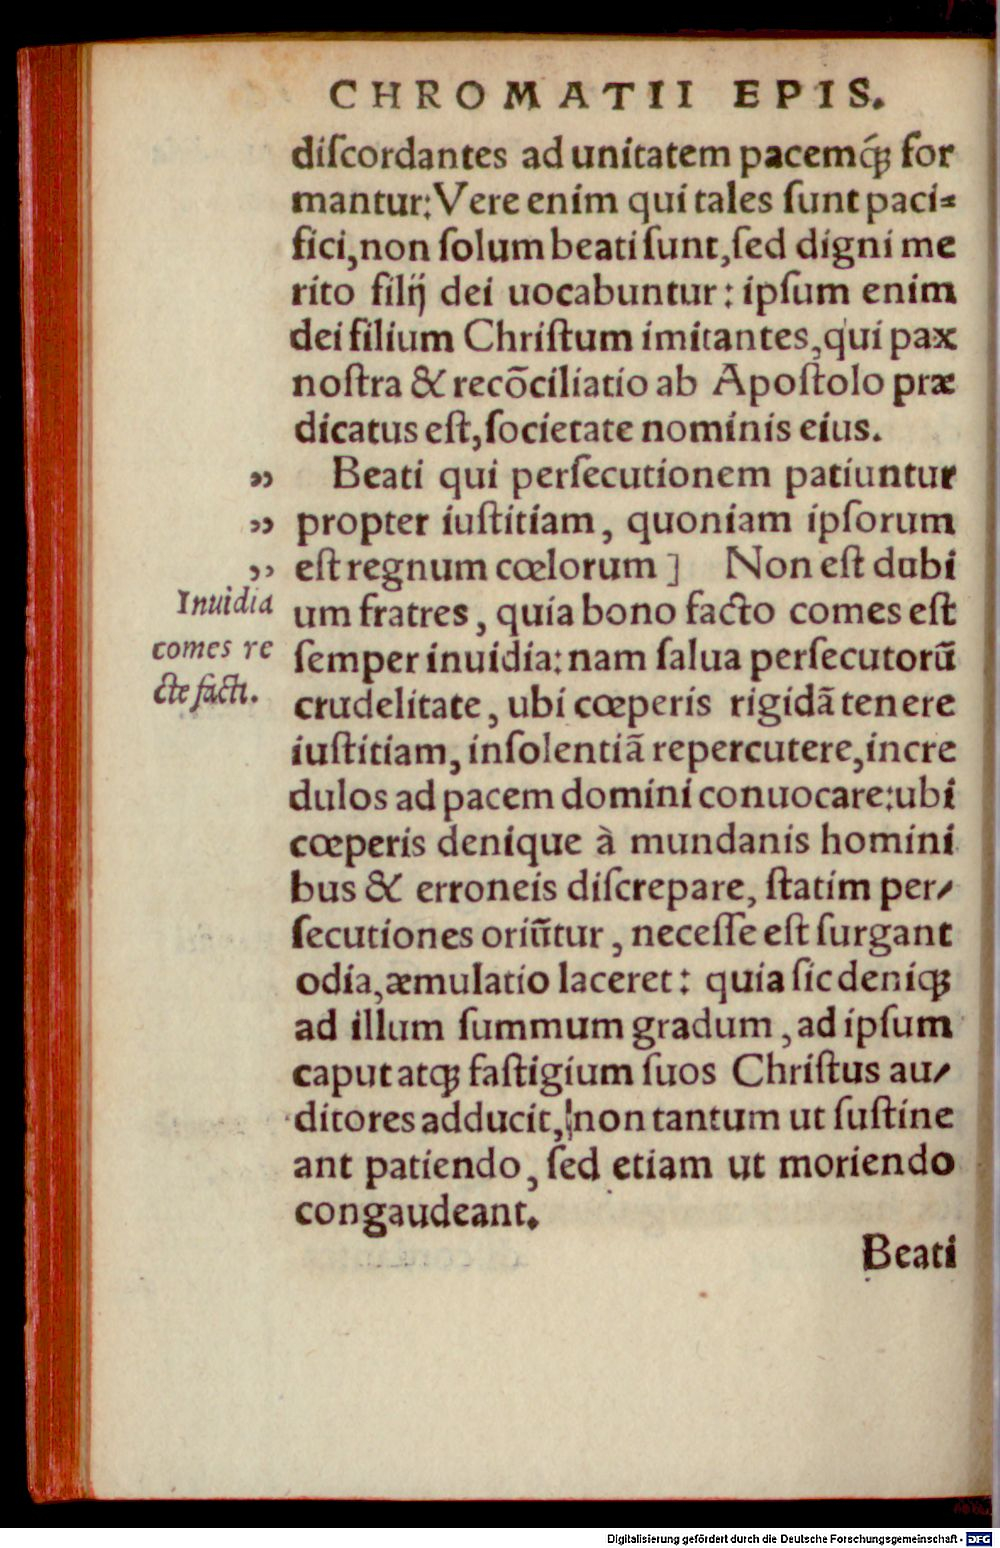 CHROMATII EPIS.
diſcordantes ad unitatem pacemq́ꝫ for
mantur: Vere enim qui tales ſunt paci⸗
fici, non ſolum beati ſunt, ſed digni me
rito filij dei uocabuntur: ipſum enim
dei filium Chriſtum imitantes, qui pax
noſtra & recõciliatio ab Apoſtolo præ
dicatus eſt, ſocietate nominis eius.
„ Beati qui perſecutionem patiuntur
„ propter iuſtitiam, quoniam ipſorum
„ eſt regnum cœlorum ] Non eſt dubi
Inuidia
um fratres, quia bono facto comes eſt
comes re
ſemper inuidia: nam ſalua perſecutorũ
cte facti.
crudelitate, ubi cœperis rigidã tenere
iuſtitiam, inſolentiã repercutere, incre
dulos ad pacem domini conuocare: ubi
cœperis denique à mundanis homini
bus & erroneis diſcrepare, ſtatim per/
ſecutiones oriũtur, neceſſe eſt ſurgant
odia, æmulatio laceret: quia ſic deniqꝫ
ad illum ſummum gradum, ad ipſum
caput atqꝫ faſtigium ſuos Chriſtus au/
ditores adducit, non tantum ut ſuſtine
ant patiendo, ſed etiam ut moriendo
congaudeant.
Beati
Digitalisierung gefördert durch die Deutsche Forschungsgemeinschaft - DFG